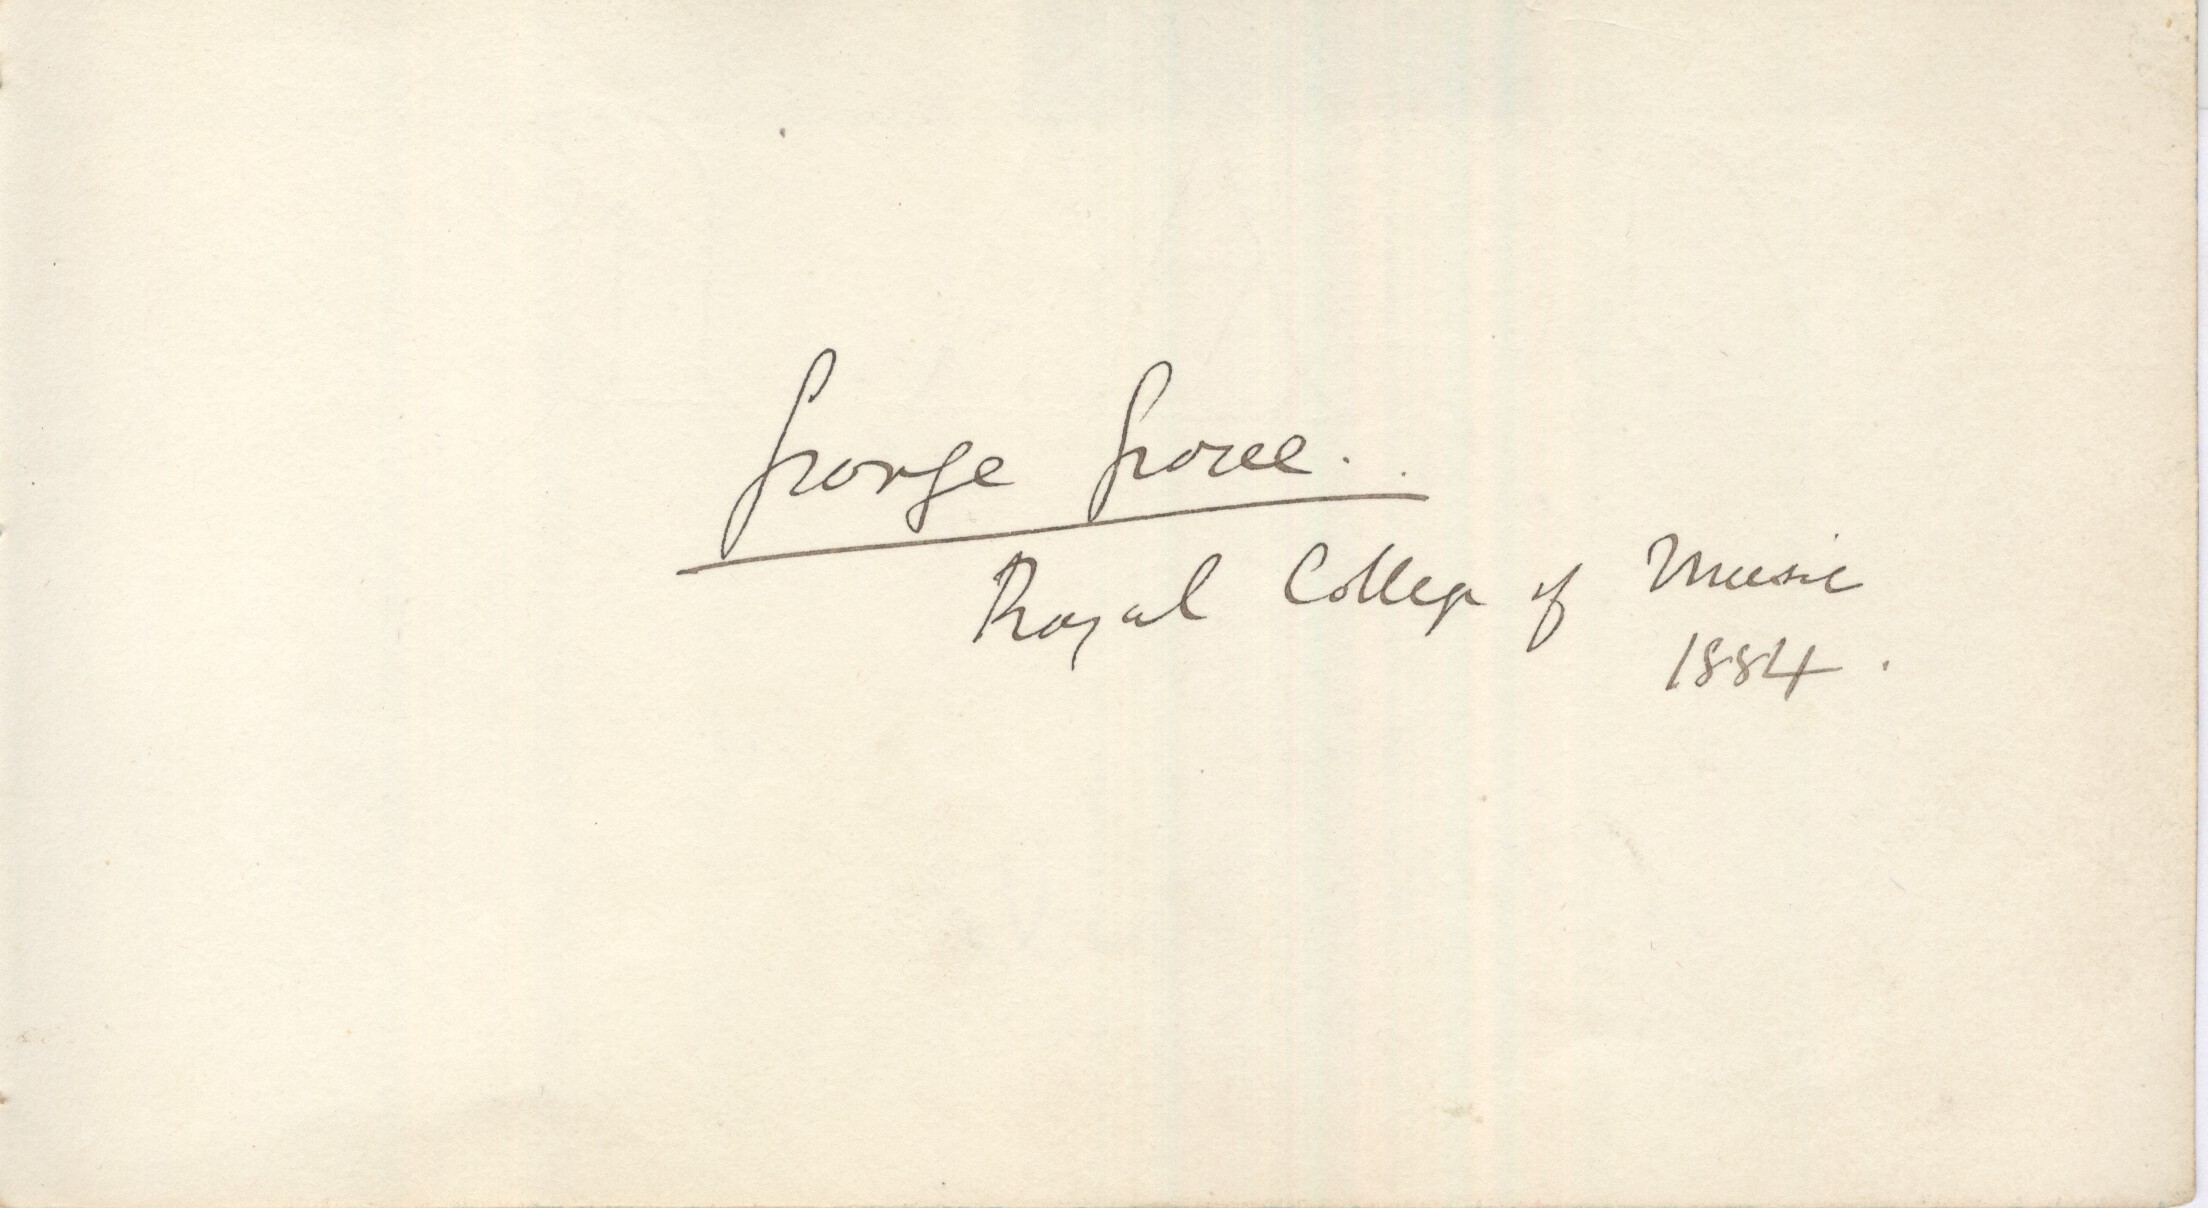 George Grove.
Royal College of Music
1884.